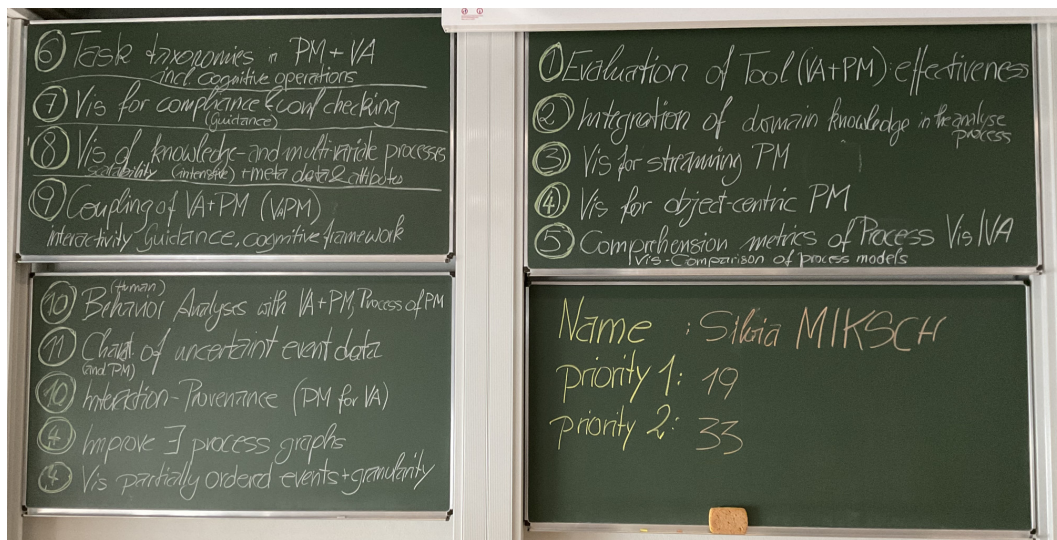 ⑥ Task taxonomies in PM + VA
incl. cognitive operations
⑦ Vis for compliance & conf checking
(Guidance)
⑧ Vis of knowledge- and multivariate processes
scalability (intensive) + meta data & attributes
⑨ Coupling of VA+PM (VAPM)
interactivity Guidance, cognitive framework
(Human)
⑩ Behavior Analyses with VA+PM, Process of PM
⑪ of uncertain event data
(and PM)
⑩ Interaction-Provenance (PM for VA)
④ Improve ∃ process graphs
④ Vis partially ordered events + granularity
① Evaluation of Tool (VA+PM): effectiveness
② Integration of domain knowledge in the analyse
process
③ Vis for streaming PM
④ Vis for object-centric PM
⑤ Comprehension metrics of Process Vis/VA
Vis-Comparison of process models
Name : Silvia MIKSCH
priority 1: 19
priority 2: 33